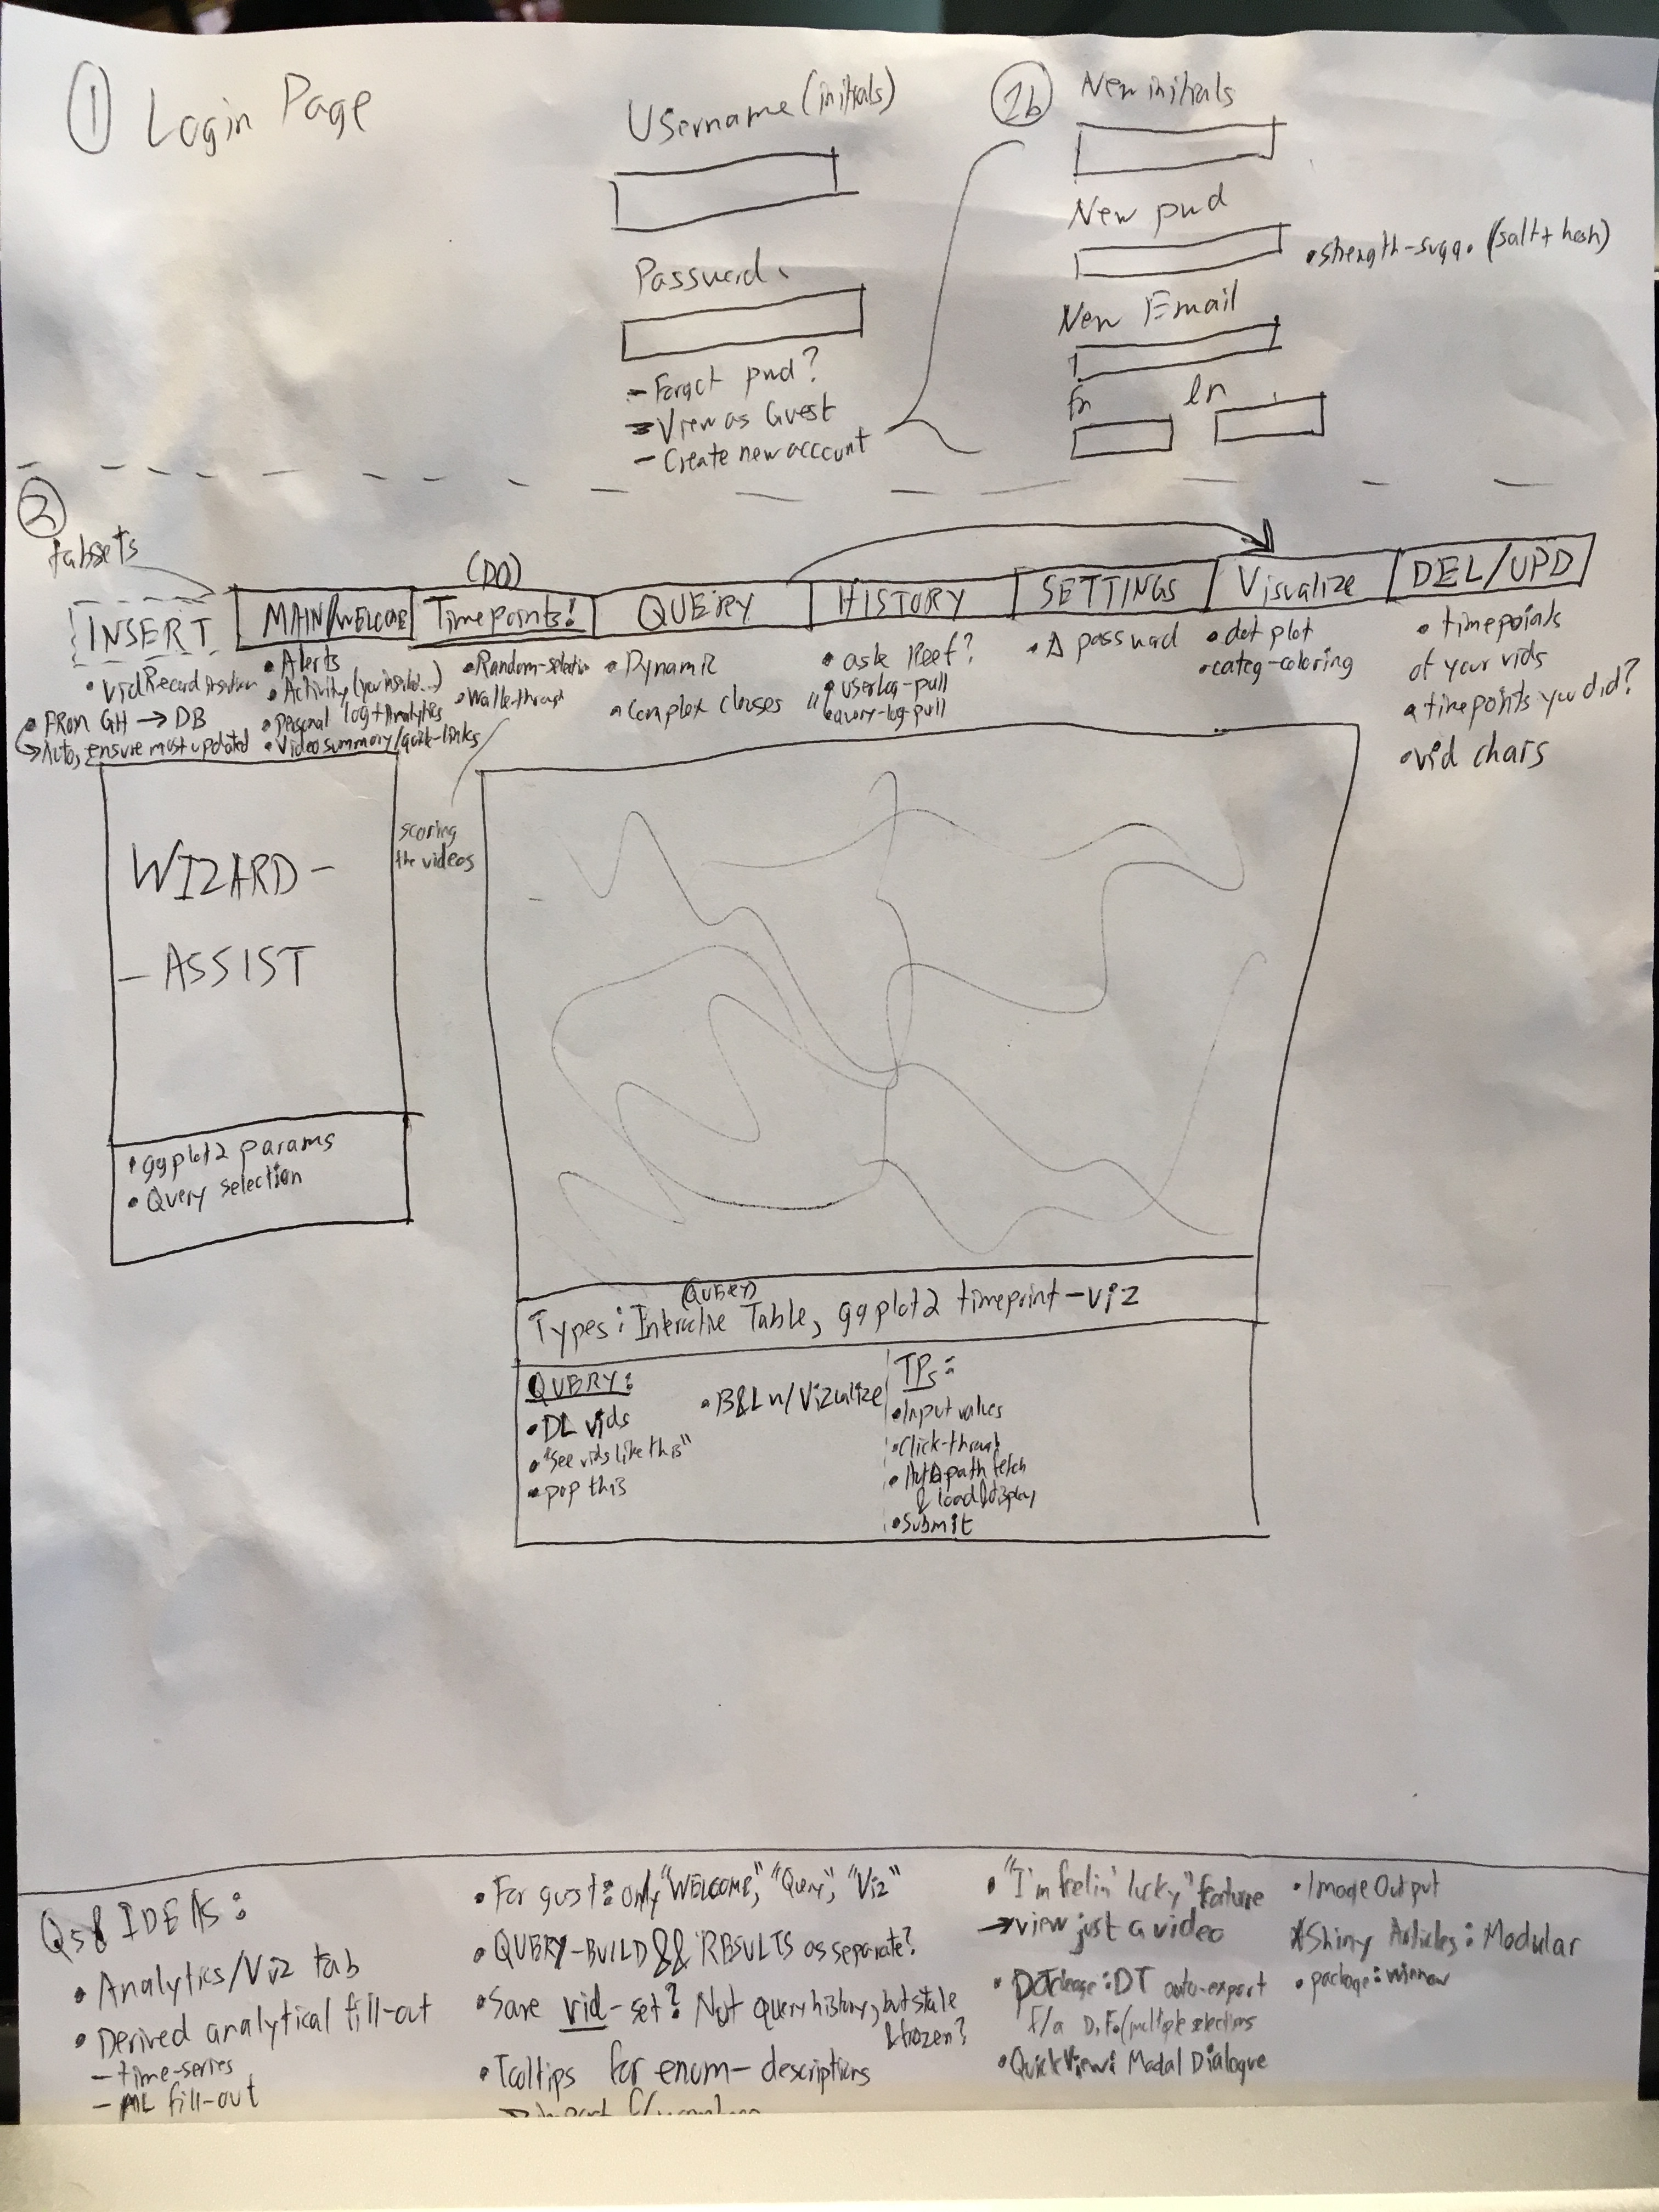 1 Login Page
Username (initials)
Password
- Forget pwd?
- View as Guest
- Create new account
1b New initials
New pwd
• strength-sugg. (salt + hash)
New Email
fn ln
2
tabsets
INSERT
• vid Record insertion
• FROM GH → DB
→ Auto, ensure most updated
MAIN/WELCOME
• Alerts
• Activity (you inserted...)
• Personal log + Analytics
• Video summary/quick-links
(DO)
Timepoints!
• Random-selection
• Walk-through
scoring
the videos
QUERY
• Dynamic
• Complex clauses
HISTORY
• ask Reef?
• userlog-pull
• query-log-pull
SETTINGS
• Δ password
Visualize
• dot plot
• categ-coloring
DEL/UPD
• timepoints
of your vids
• timepoints you did?
• vid chars
WIZARD-
- ASSIST
• ggplot2 params
• Query selection
(QUERY)
Types: Interactive Table, ggplot2 timeprint-viz
QUERY:
• DL vids
• "See vids like this"
• pop this
• B&L w/ Vizualize
TPs:
• Input values
• Click-through
• path fetch
& load & display
• Submit
Qs & IDEAS:
• Analytics/Viz tab
• Derived analytical fill-out
- time-series
- ML fill-out
• For gust: only "WELCOME," "Query", "Viz"
• QUERY-BUILD && RESULTS as separate?
• Save vid-set? Not query history, but stale
& frozen?
• Tooltips for enum-descriptions
• "I'm feelin' lucky" feature
→ view just a video
• : DT auto-export
f/a D.F. (multiple selections
• QuickView: Modal Dialogue
• Image Output
* Shiny Articles: Modular
• package: